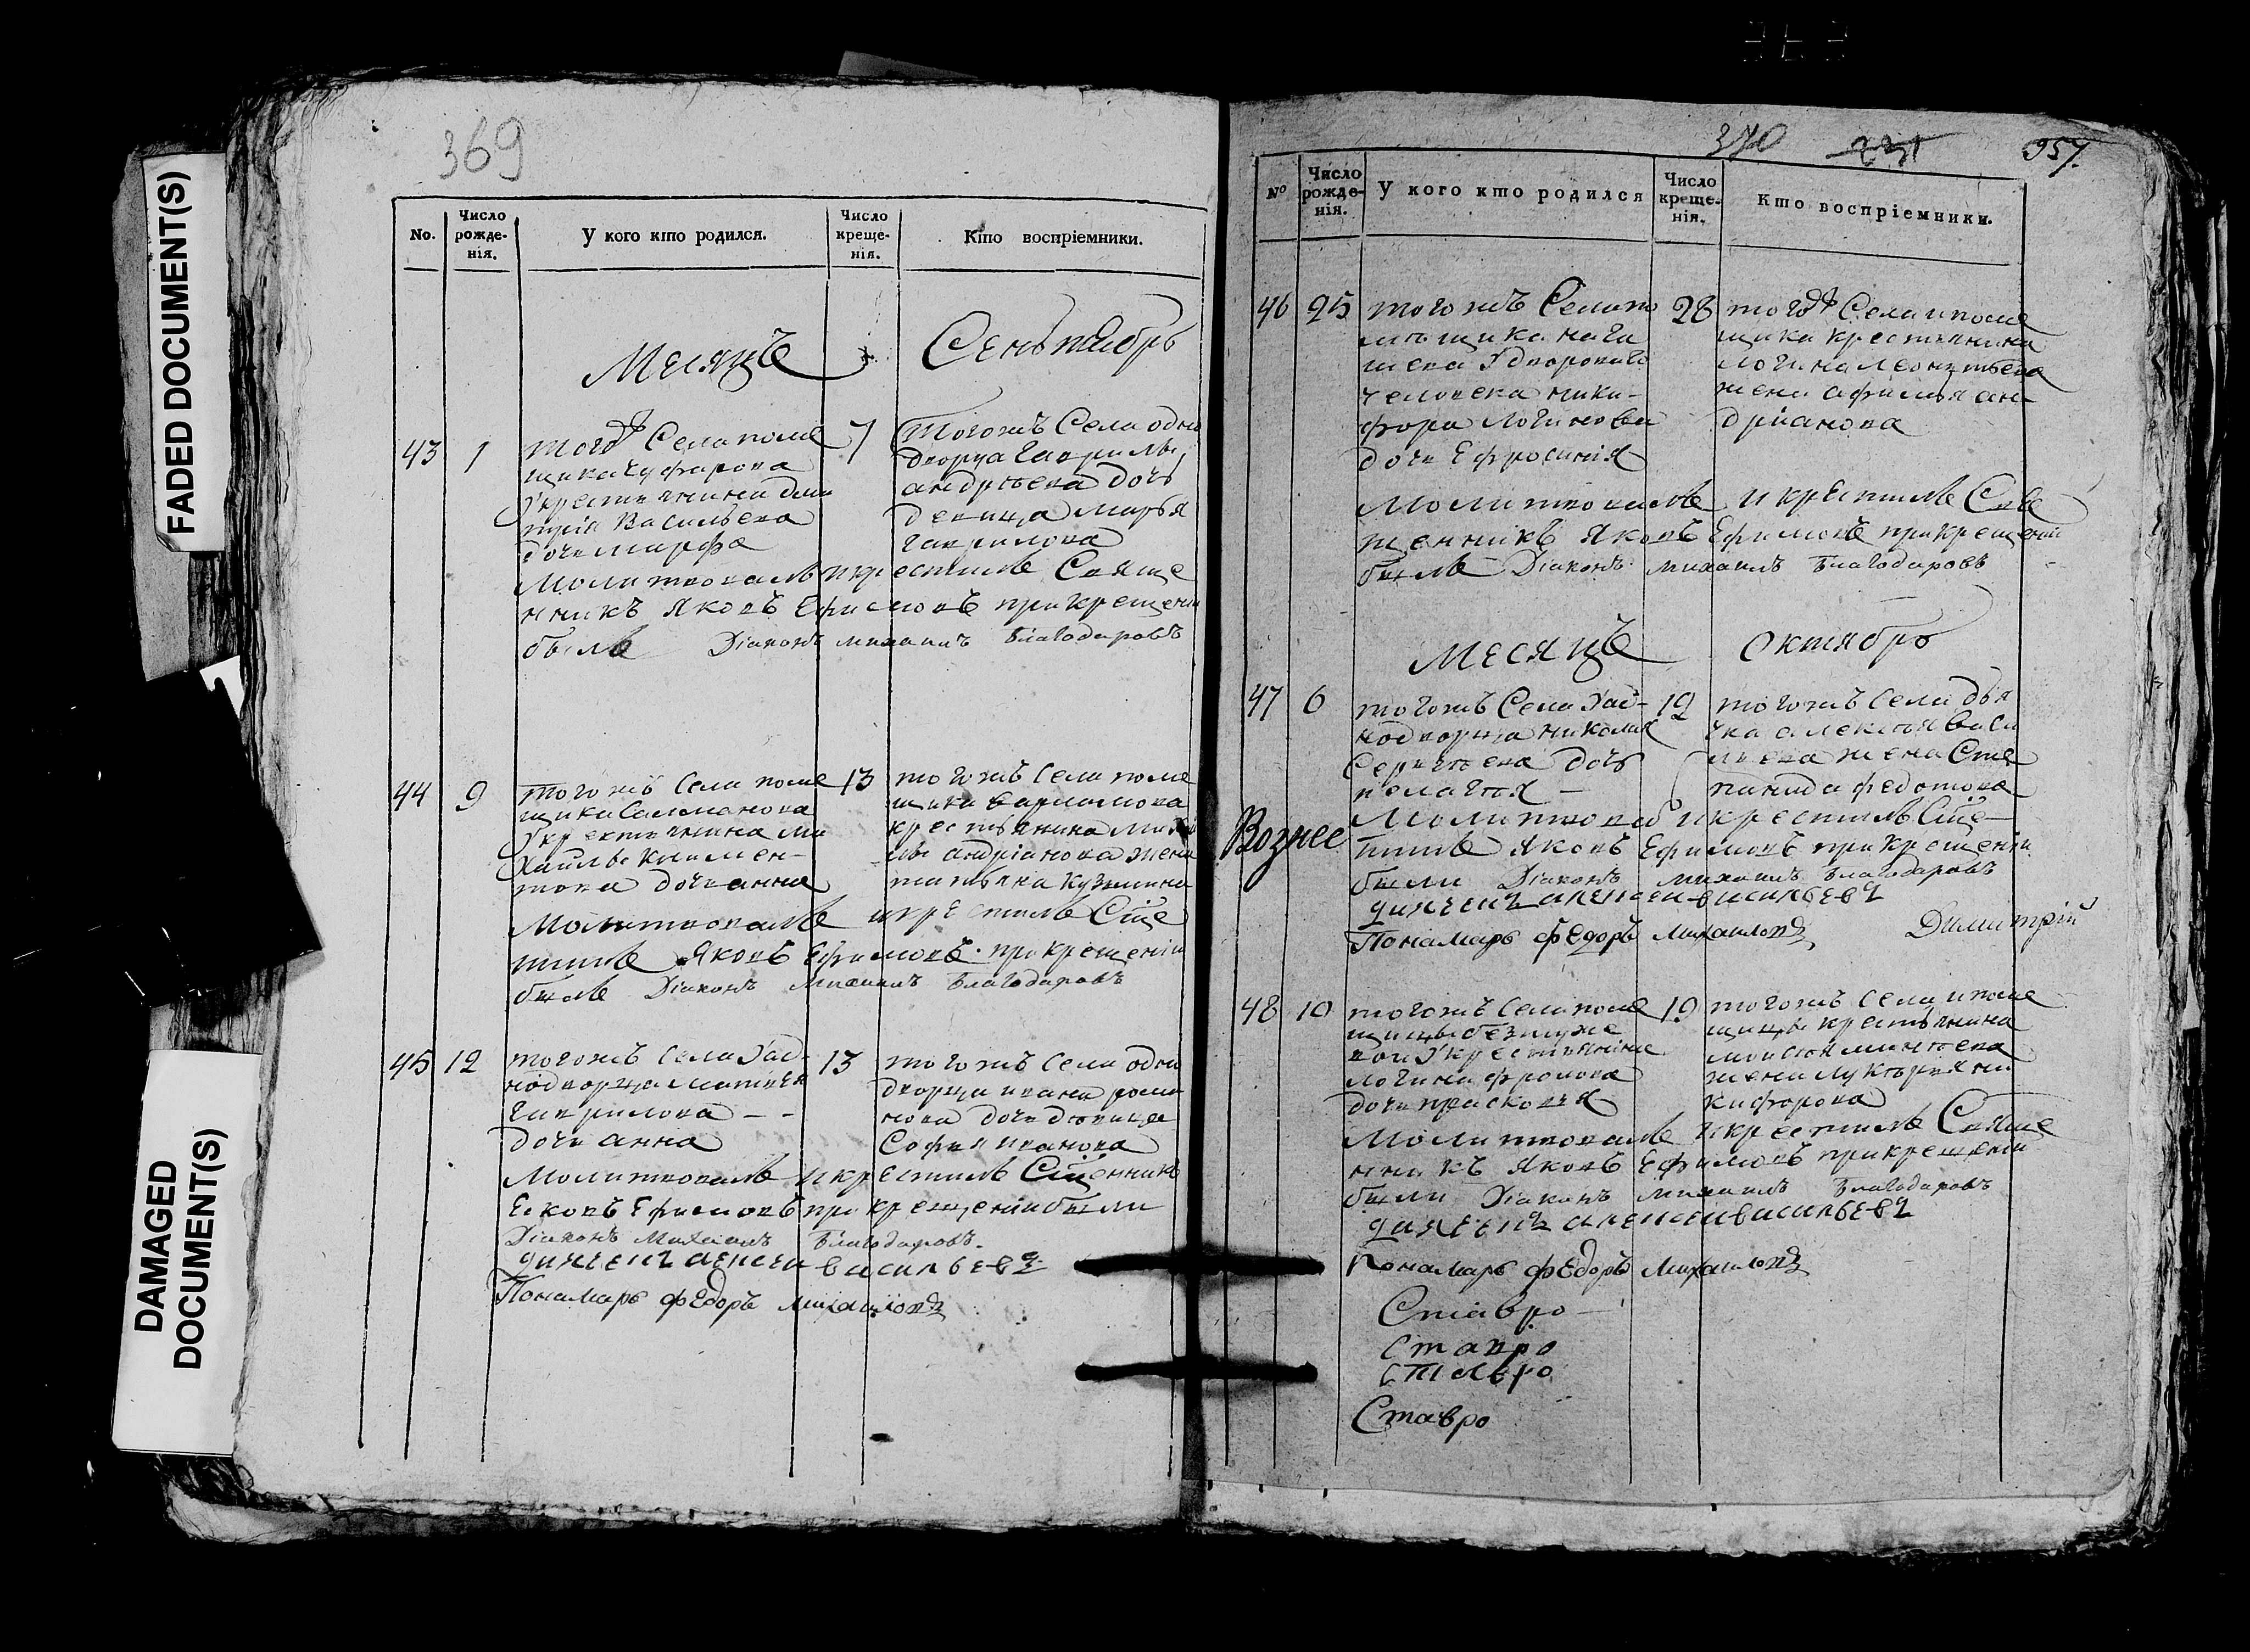 FADED DOCUMENT(S)
DAMAGED
DOCUMENT(S)
369
No.
Число
рожде-
нія.
У кого кто родился.
Число
креще-
нія.
Кто воспріемники.
Месяцъ Сеньтябръ
43 1
тогож Села поме
щика
Укрестьянина дми
трія Васильева
дочь марфа
7
Тогожъ Села одно
дворца Гаврилы
андреева дочь
девица марья
гаврилова
Молитвовалъ икрестилъ Свяще
нникъ Яковъ Ефимовъ прикрещеніи
былъ Діаконъ михаилъ Благодаровъ
44 9
тогожъ Села поме
щика Салманова
Укрестьянина ми
хайлы климен-
това дочь анна
13
тогожъ Села поме
щика варламова
крестьянина
андріанова жена
татьяна кузмина
Молитвовалъ икрестилъ Сще
нникъ Яковъ Ефимовъ прикрещеніи
былъ Діаконъ Михаилъ Благодаровъ
45 12
тогожъ Села Уод-
нодворца матвея
гаврилова - -
дочь анна
13
тогожъ Села одно
дворца ивана рома
нова дочь девица
Софья иванова
Молитвовалъ икрестилъ Сщенникъ
Яковъ Ефимовъ прикрещеніи были
Діаконъ Михаилъ Благодаровъ
васильевъ
Понамарь федоръ михаиловъ
370 957.
No
Число
рожде-
нія.
У кого кто родился
Число
креще-
нія.
Кто воспріемники.
46 25
тогожъ Села по
мещика нага
ткина Удворового
человека ники-
фора логинова
дочь Ефросинія
28
тогож Села ипоме
щика крестьянина
логина леонтьева
жена афимья ан
дріанова
Молитвовалъ икрестилъ Свя
щенникъ Яковъ Ефимовъ прикрещеніи
былъ Діаконъ михаилъ Благодаровъ
Месяцъ Октябрь
47 6
тогожъ Села Уод-
нодворца николая
Сергеева дочь
пелагея -
19
тогожъ Села дья
чка алексея Васи
льева жена Сте
панида федотова
Молитвовалъ икрестилъ Сще-
нникъ Яковъ Ефимовъ прикрещеніи
были Діаконъ михаилъ Благодаровъ
дьячекъ алексеи васильевъ
Понамарь федоръ михаиловъ Димитрій
48 10
тогожъ Села поме
щицы
Укрестьянина
логина фролова
дочь прасковья
19
тогожъ Села ипоме
щицы крестьянина
моисея
жена лукерья ни
кифорова
Молитвовалъ икрестилъ Свяще
нникъ Яковъ Ефимовъ прикрещеніи
были Діаконъ михаилъ Благодаровъ
дьячекъ алексеи васильевъ
Понамарь федоръ михаиловъ
Ставро
Ставро
Ставро
Ставро